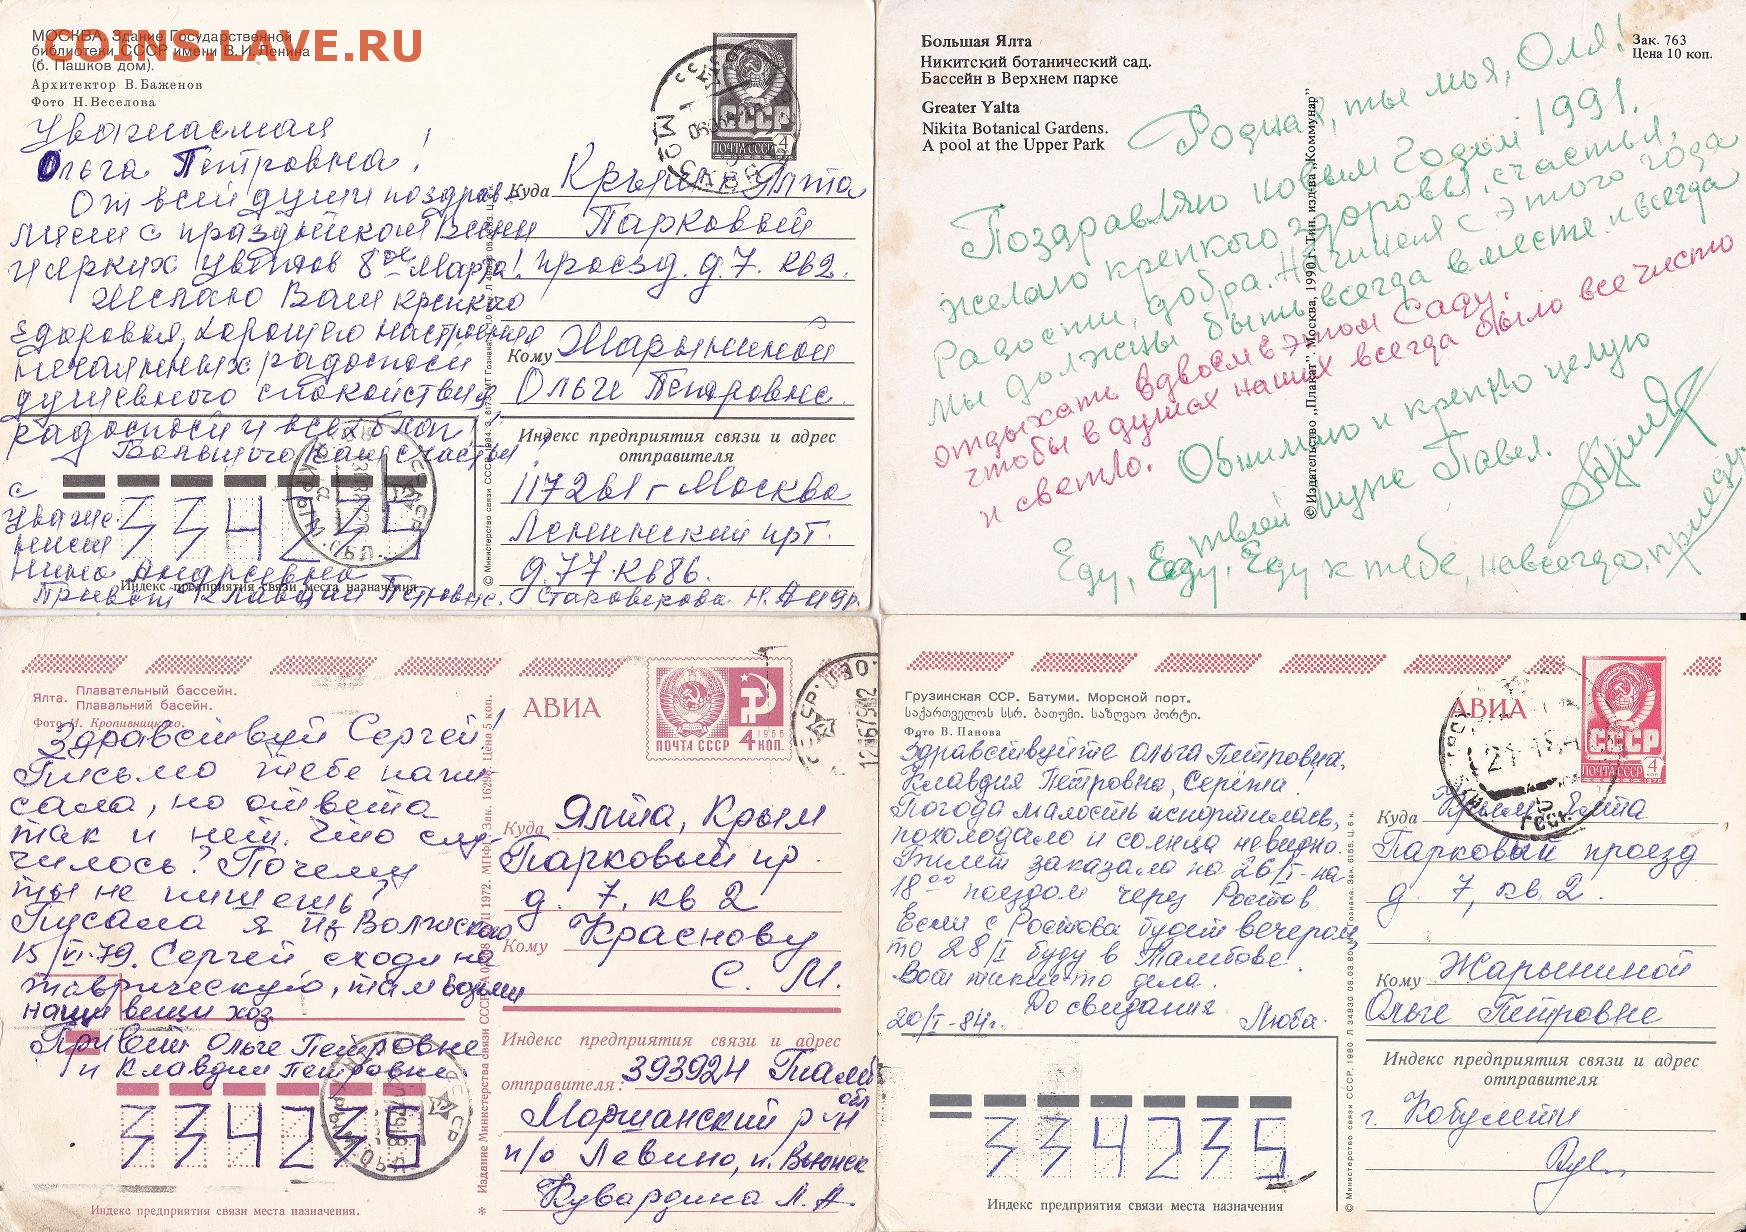 COINS.LAVE.RU
МОСКВА. Здание Государственной
библиотеки СССР имени В. И. Ленина
(б. Пашков дом).
Архитектор В. Баженов
Фото Н. Веселова
Уважаемая
Ольга Петровна!
От всей души поздрав
ляем с праздником Весны
и ярких цветов 8ое Марта!
Желаю Вам крепкого
здоровья, хорошего настроения
нечаянных радостей
душевного спокойствия
радости и всех благ!
Большого Вам счастья!
с
уваже
нием
Нина Андреевна
Привет Клавдии Петровне.
334235
Индекс предприятия связи места назначения
ПОЧТА СССР
4
Куда Крым Ялта
Парковый
проезд. д. 7. кв 2.
Кому Жарыниной
Ольге Петровне.
Индекс предприятия связи и адрес
отправителя
117261 г Москва
Ленинский прт.
д. 77. кв 86.
Старовекова Н. Андр.
Большая Ялта
Никитский ботанический сад.
Бассейн в Верхнем парке
Greater Yalta
Nikita Botanical Gardens.
A pool at the Upper Park
Зак. 763
Цена 10 коп.
Родная, ты моя, Оля!
Поздравляю с новым Годом 1991.
Желаю крепкого здоровья, счастья,
Радости, добра. Начиная с этого года
Мы должны быть всегда вместе и всегда
отдыхать вдвоем в этом Саду.
чтобы в душах наших всегда было все чисто
и светло.
Обнимаю и крепко целую
твой муж Павел.
Еду, Еду, Еду к тебе, навсегда, приеду.
© Издательство „Плакат". Москва, 1990 г. Тип. изд-ва „Коммунар"
Ялта. Плавательный бассейн.
Плавальний басейн.
Фото И. Кропивницкого.
АВИА
ПОЧТА СССР 4 КОП.
1966
Здравствуй Сергей!
Письмо тебе напи
сала, но ответа
так и нет. Что слу-
чилось? Почему
ты не пишешь?
Писала я из Волжского
15/VI-79. Сергей сходи на
таврическую, там возьми
наши вещи хоз
Привет Ольге Петровне
и Клавдии Петровне.
334235
Индекс предприятия связи места назначения.
Куда Ялта, Крым
Парковый пр.
д. 7, кв 2
Кому Краснову
С. М.
Индекс предприятия связи и адрес
отправителя: 393924 Тамб
обл
Моршанский р-н
п/о Левино, п. Вьюнск
Кувардина Л. А
Грузинская ССР. Батуми. Морской порт.
საქართველოს სსრ. ბათუმი. საზღვაო პორტი.
Фото В. Панова
АВИА
СССР
ПОЧТА СССР
4
КОП
Здравствуйте Ольга Петровна,
Клавдия Петровна, Серёжа!
Погода малость испортилась,
похолодало и солнца не видно.
Билет заказала на 26/I-на
18 00 поездом через Ростов.
Если с Ростова будет вечером
то 28/I буду в Тамбове.
Вот такие-то дела.
До свидания
20/I-84г. Люба.
334235
Индекс предприятия связи места назначения
Куда Крым Ялта
Парковый проезд
д. 7, кв. 2.
Кому Жарыниной
Ольге Петровне
Индекс предприятия связи и адрес
отправителя
г. Кобулети